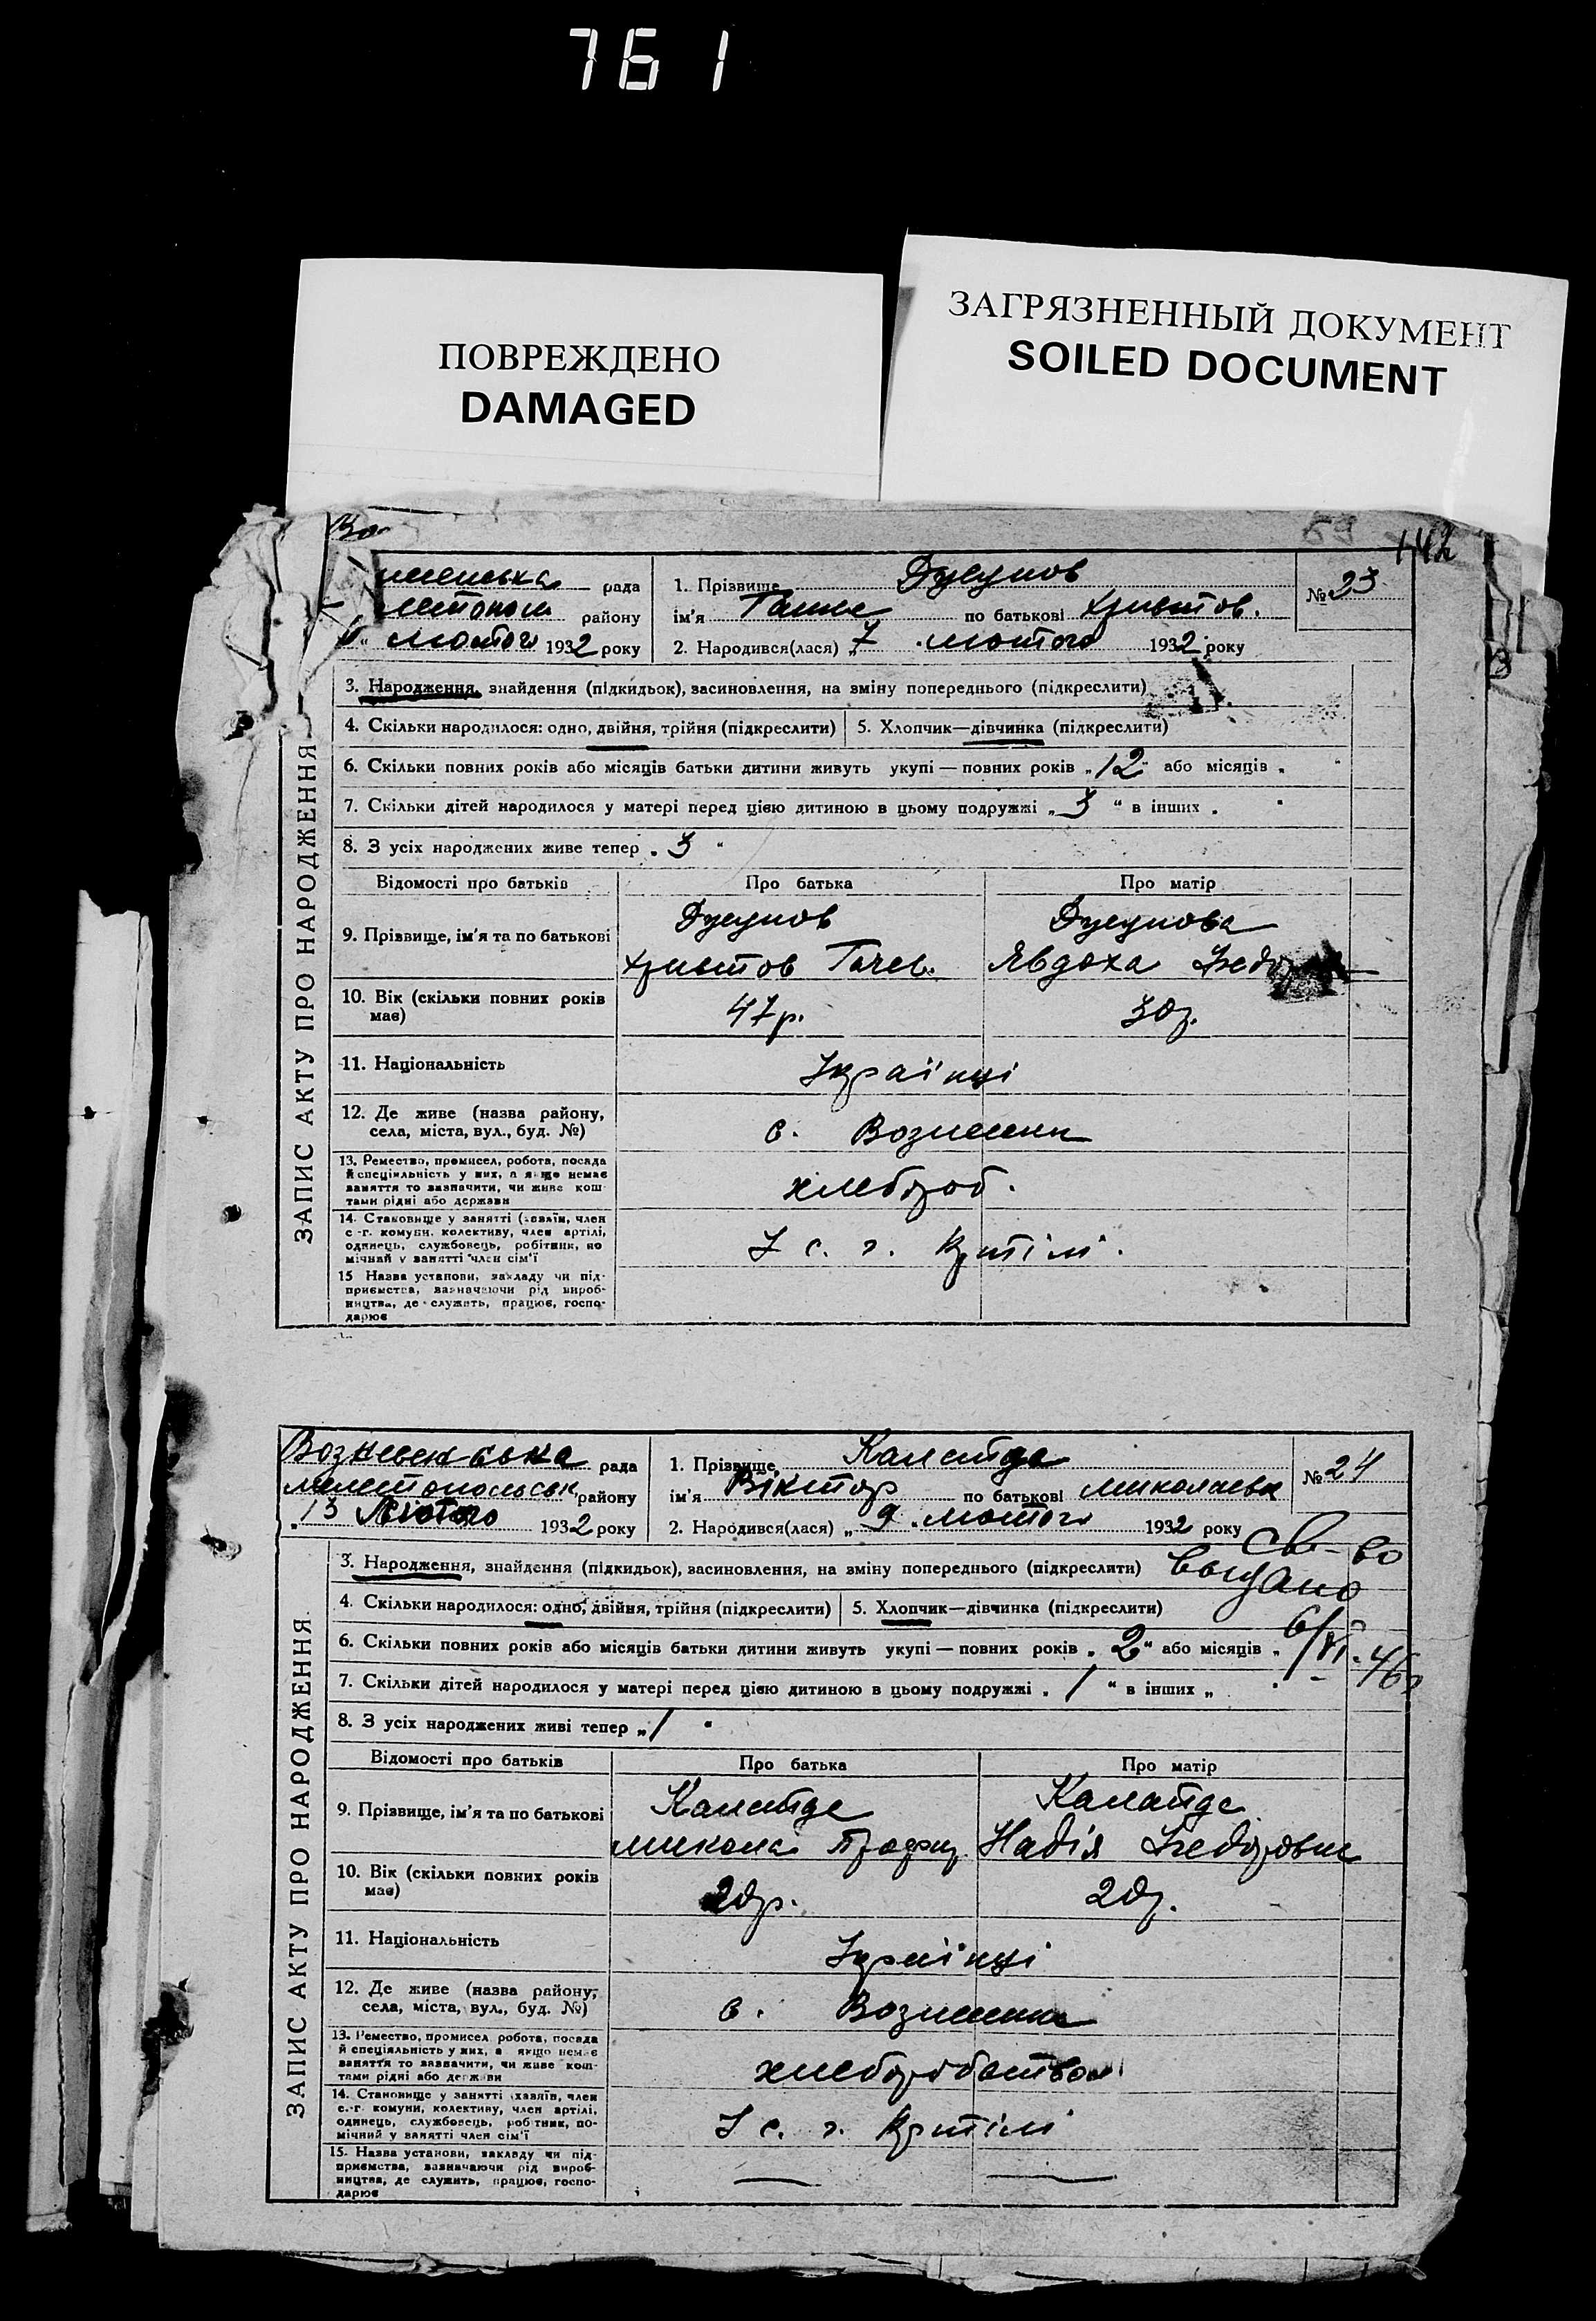 761
ПОВРЕЖДЕНО
DAMAGED
ЗАГРЯЗНЕННЫЙ ДОКУМЕНТ
SOILED DOCUMENT
142
рада
району
лютого 1932 року
1. Прізвище
№ 23
ім'я по батькові Христов.
2. Народився(лася) „7 " лютого 1932 року
ЗАПИС АКТУ ПРО НАРОДЖЕННЯ
3. Народження, знайдення (підкидьок), засиновлення, на зміну попереднього (підкреслити)
4. Скільки народилося: одно, двійня, трійня (підкреслити)
5. Хлопчик—дівчинка (підкреслити)
6. Скільки повних років або місяців батьки дитини живуть укупі — повних років „12" або місяців „ "
7. Скільки дітей народилося у матері перед цією дитиною в цьому подружжі „3 " в інших „ "
8. З усіх народжених живе тепер „3 "
Відомості про батьків Про батька Про матір
9. Прізвище, ім'я та по батькові
Христов
Явдоха
10. Вік (скільки повних років має) 47р. 30р.
11. Національність Українці
12. Де живе (назва району, села, міста, вул., буд. №) с. Вознесенка
13. Ремество, промисел, робота, посада й спеціяльність у них, а якщо немає заняття то зазначити, чи живе коштами рідні або держави
хлебороб.
14. Становище у занятті (хазяїн, член с.-г. комуни, колективу, член артілі, одинець, службовець, робітник, помічний у занятті член сім'ї
У с. г. Артілі.
15 Назва установи, закладу чи підприємства, вазначаючи рід виробництва, де служить, працює, господарює
Вознесенська рада
Мелітопольськ району
„13 Лютого 1932 року
1. Прізвище
№ 24
ім'я Віктор по батькові Миколаєвич
2. Народився(лася) „ 9 " лютого 1932 року
св-во
выдано
6/VI-46г
ЗАПИС АКТУ ПРО НАРОДЖЕННЯ
3. Народження, знайдення (підкидьок), засиновлення, на зміну попереднього (підкреслити)
4. Скільки народилося: одно, двійня, трійня (підкреслити)
5. Хлопчик—дівчинка (підкреслити)
6. Скільки повних років або місяців батьки дитини живуть укупі — повних років „ 2 " або місяців „
7. Скільки дітей народилося у матері перед цією дитиною в цьому подружжі „ 1 " в інших „ "
8. З усіх народжених живі тепер „1 "
Відомості про батьків Про батька Про матір
9. Прізвище, ім'я та по батькові
Микола
Надія Федоровна
10. Вік (скільки повних років має) 20р. 20р.
11. Національність Українці
12. Де живе (назва району, села, міста, вул., буд. №) с. Вознесенка
13. Ремество, промисел робота, посада й спеціяльність у них, а якщо немає заняття то зазначити, чи живе коштами рідні або держави
хлеборобством
14. Становище у занятті хазяїн, член с.-г. комуни, колективу, член артілі, одинець, службовець, робітник, помічний у занятті член сім'ї
У с. г. Артілі
15. Назва установи, закладу чи підприємства, вазначаючи рід виробництва, де служить, працює, господарює